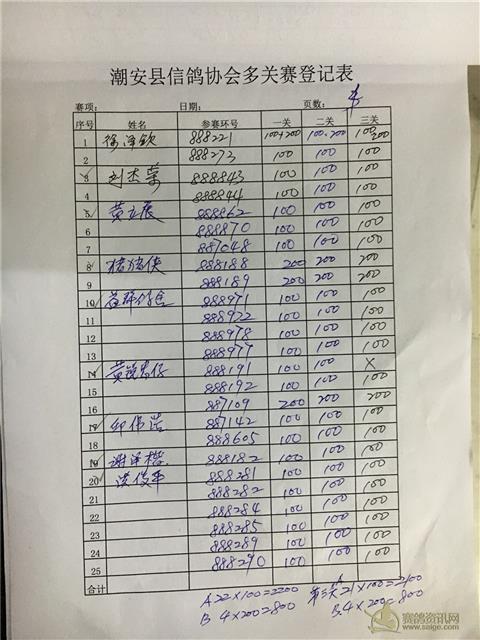 潮安县信鸽协会多关赛登记表
赛项: 日期: 页数:
序号 姓名 参赛环号 一关 二关 三关
1 徐泽钦 888221 100+200 100+200 100+200
2 888273 100 100 100
3 刘杰荣 888843 100 100 100
4 888844 100 100 100
5 黄立辰 888862 100 100 100
6 888870 100 100 100
7 887048 100 100 100
8 888188 200 200 200
9 888189 200 200 200
10 888971 100 100 100
11 888972 100 100 100
12 888978 100 100 100
13 888977 100 100 100
14 888191 100 100 X
15 888192 100 100 100
16 887109 200 200 200
17 邱伟 887142 100 100 100
18 888605 100 100 100
19 谢泽楷 888182 100 100 100
20 洪俊平 888281 100 100 100
21 888282 100 100 100
22 888284 100 100 100
23 888285 100 100 100
24 888289 100 100 100
25 888290 100 100 100
合计
A 22×100=2200 第三关 A 21×100=2100
B 4×200=800 B 4×200=800
赛鸽资讯网
www.saige.com